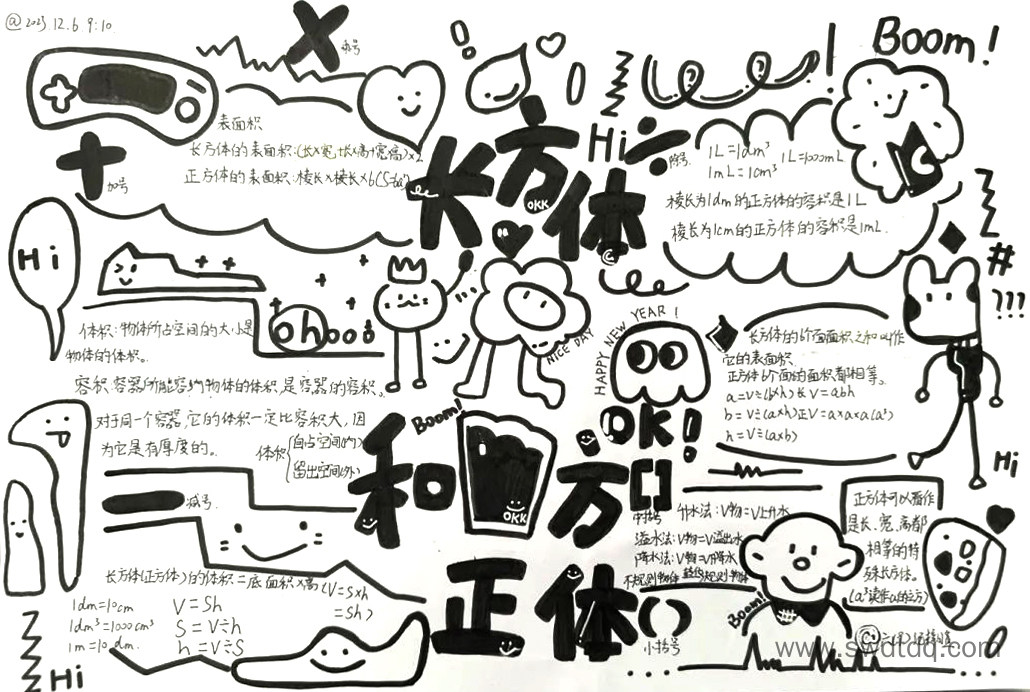 @2023.12.6.9:10.
乘号
Boom!
表面积
长方体的表面积:(长×宽+长×高+宽×高)×2
正方体的表面积:棱长×棱长×6
加号
长方体
OKK
Hi
除号
1L=1dm³
1L=1000mL
1mL=1cm³
棱长为1dm的正方体的容积是1L
棱长为1cm的正方体的容积是1mL.
Hi
ohooo
体积:物体所占空间的大小是
物体的体积。
容积:容器所能容纳物体的体积,是容器的容积。
NICE DAY
HAPPY NEW YEAR!
#
???
长方体的6个面面积之和叫作
它的表面积
正方体6个面的面积都相等。
a=V÷(b×h) 长V=abh
b=V÷(a×h) 正V=a×a×a(a³)
h=V÷(a×b)
Hi
对于同一个容器,它的体积一定比容积大,因
为它是有厚度的。
体积
自占空间(内)
留出空间(外)
Boom!
OK!
和
OKK
方
[]
中括号
减号.
升水法:V物=V上升水
溢水法:V物=V溢出水
降水法:V物=V下降水
不规则物体 转化 规则物体
正方体可以看作
是长、宽、高都
相等的特
殊长方体。
(a³读作a的立方)
长方体(正方体)的体积=底面积×高(V=S×h
=Sh)
1dm=10cm
1dm³=1000cm³
1m=10dm.
V=Sh
S=V÷h
h=V÷S
正体
()
小括号
Boom!
Hi
www.swdtdq.com